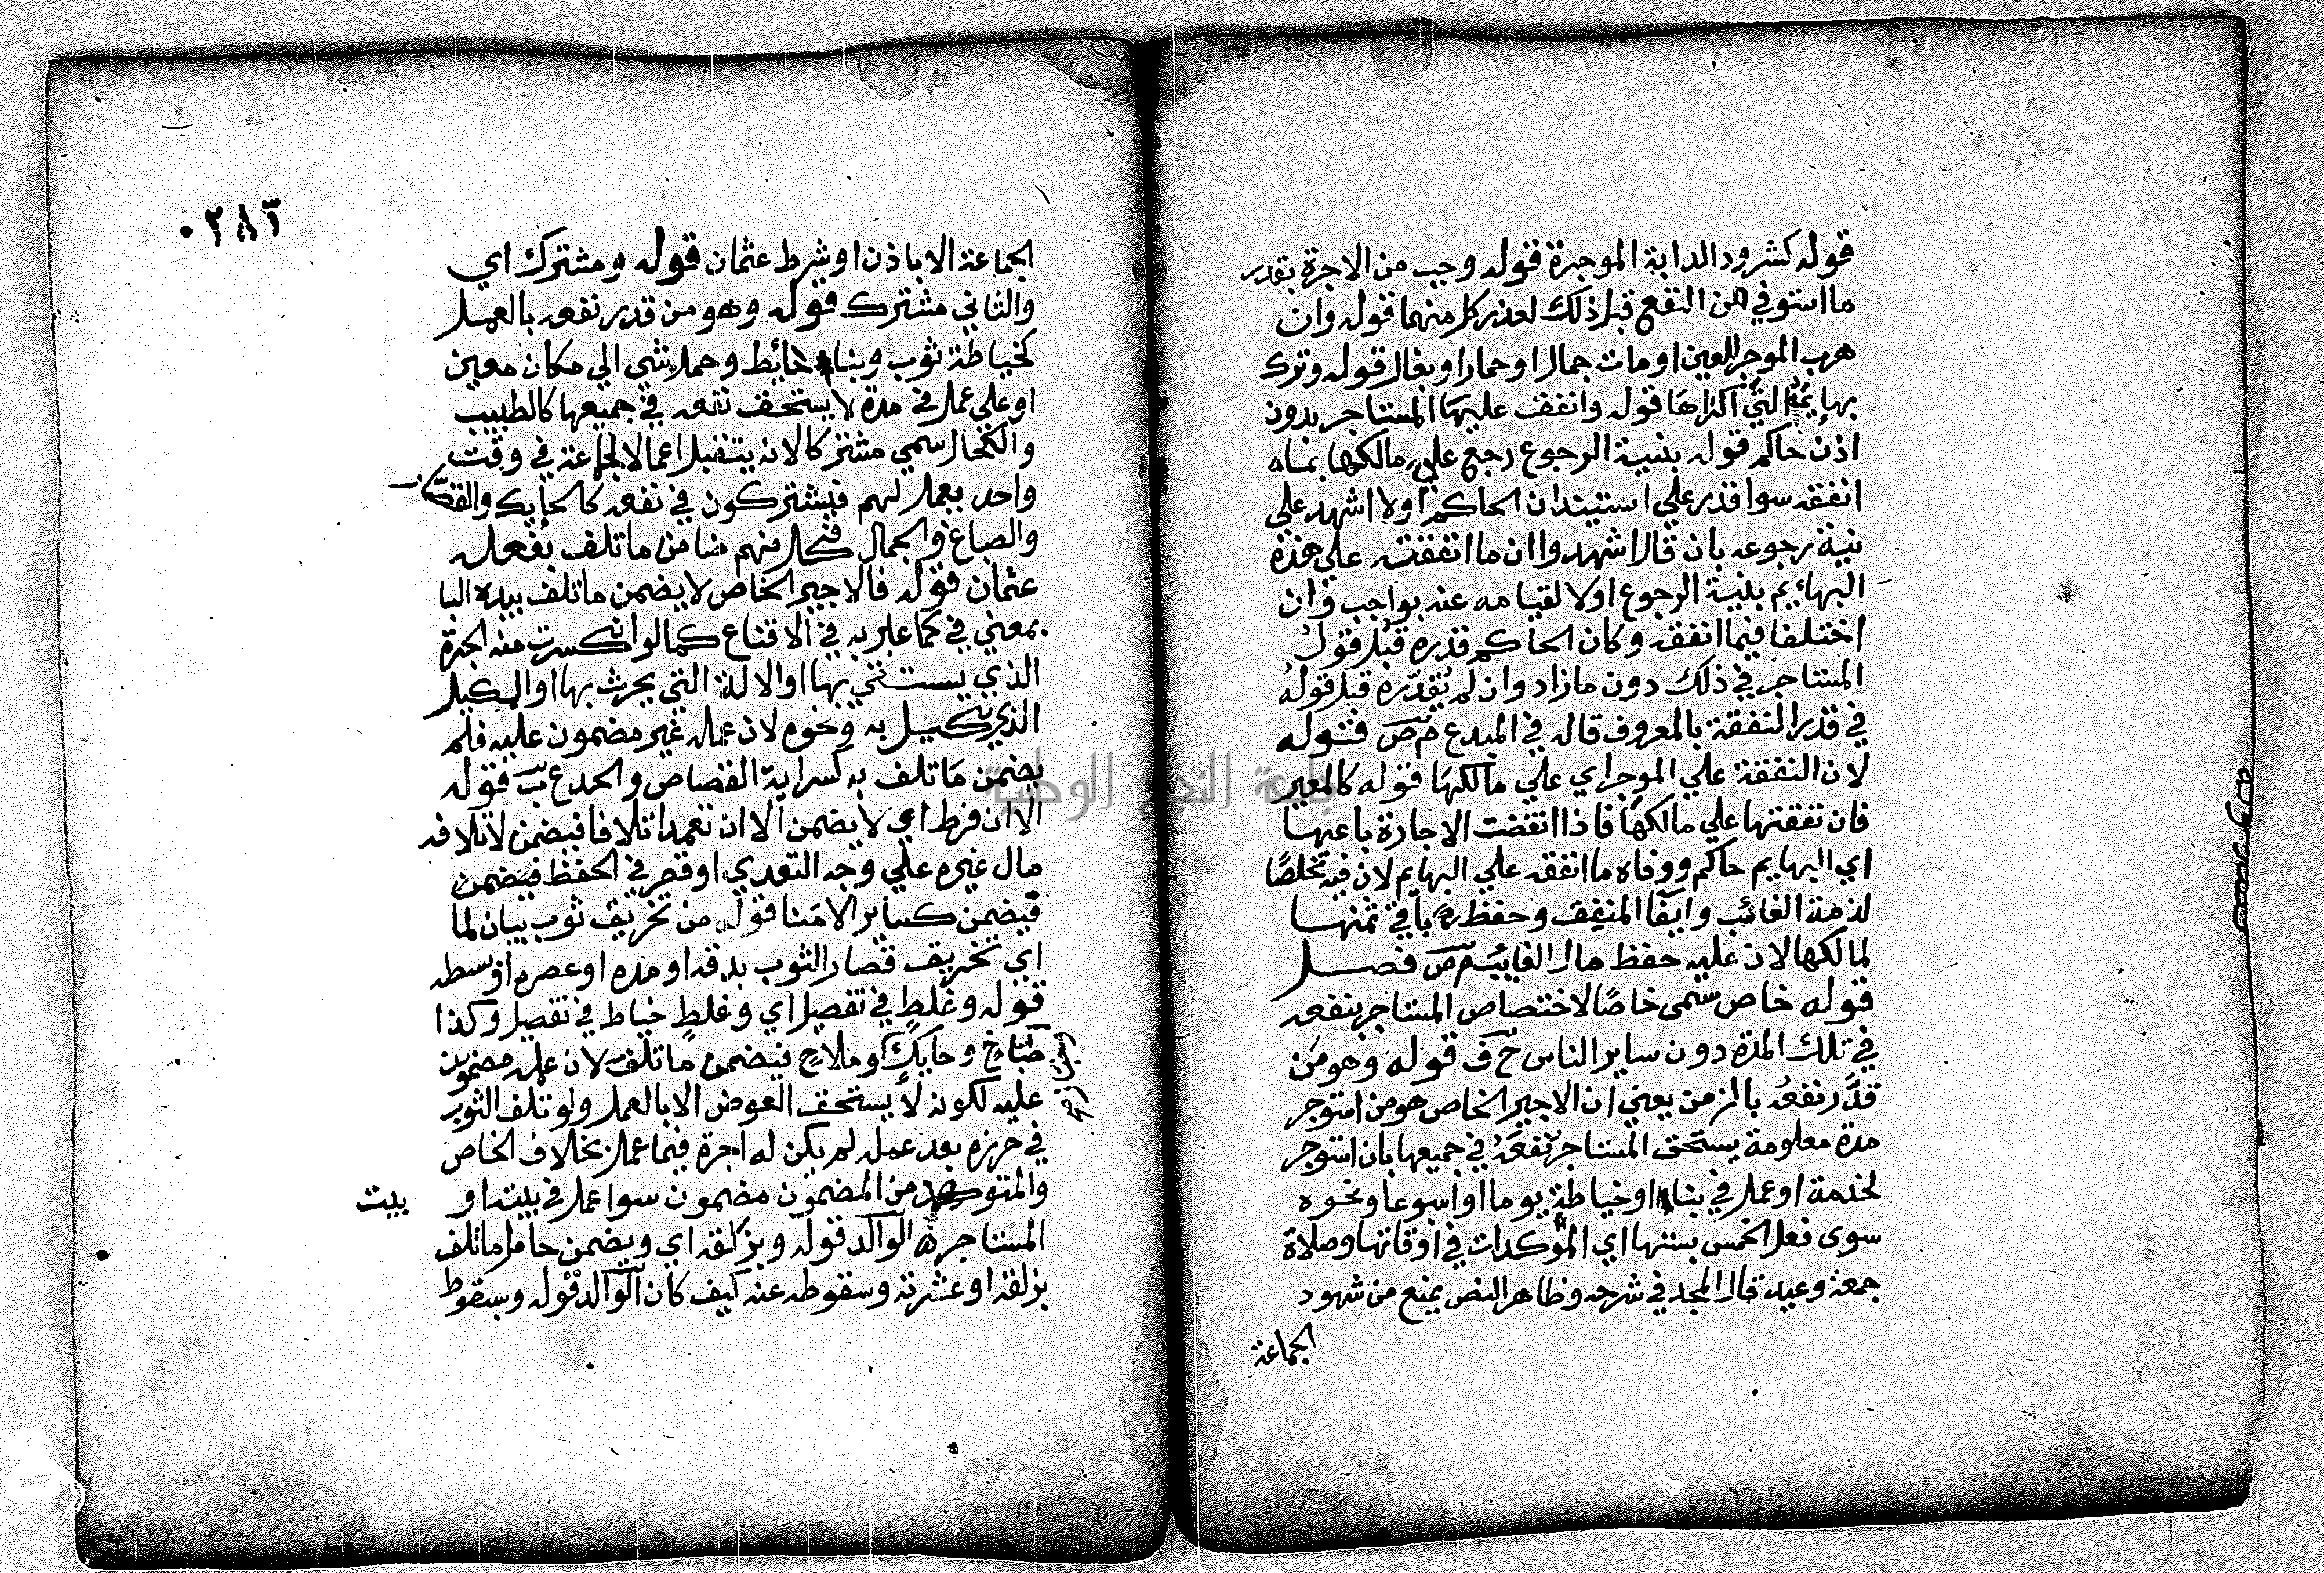 قوله كشرود الدابة الموجرة قوله وجب من الاجرة بقدر
ما استوفي من النفع قبل ذلك لعذر كل منهما قوله وان
هرب الموجر للعين او مات جمالا او حمارا او بغالا قوله وترك
بهايمه التي اكراها قوله وانفق عليها المستاجر بدون
اذن حاكم قوله بنية الرجوع رجع علي مالكها بما
انفقه سوا قدر علي استيذان الحاكم اولا اشهد علي
نية رجوعه بان قال اشهدوا ان ما انفقته علي هذه
البهائم بنية الرجوع اولا لقيامه عنه بواجب وان
اختلفا فيما انفقه وكان الحاكم قدره قبل قول
المستاجر في ذلك دون ما زاد وان لم يُقدّره قبل قوله
في قدر النفقة بالمعروف قاله في المبدع م ص قوله
لان النفقة علي الموجر اي علي مالكها قوله كالمعير
فان نفقتها علي مالكها فاذا انقضت الاجارة باعها
اي البهايم حاكم ووفاه ما انفقه علي البهايم لان فيه تخلصًا
لذمة الغائب وايفا المنفق وحفظ باقي ثمنها
لمالكها لان عليه حفظ مال الغايب م ص فصل
قوله خاص سمى خاصًا لاختصاص المستاجر بنفعه
في تلك المدة دون ساير الناس ح ف قوله وهو مَن
قدَّر نفعُه بالزمن يعني ان الاجير الخاص هو من استوجر
مدة معلومة يستحق المستاجر نفعَهُ في جميعها بان استوجر
لخدمة او عمل في بناء او خياطة يوما او اسبوعا ونحوه
سوى فعل الخمس بسننها اي المؤكدات في اوقاتها وصلاة
جمعة وعيد قال المجد في شرحه وظاهر النص يمنع من شهود
الجماعة
٠٢٨٦
الجماعة الا باذن او شرط عثمان قوله ومشترك اي
والثاني مشترك قوله وهو من قدر نفعه بالعمل
كخياطة ثوب وبناء حائط وحمل شي الي مكان معين
او علي عمل في مدة لا يستحق نفعه في جميعها كالطبيب
والكحال سمي مشتركا لانه يتقبل اعمالا لجماعة في وقت
واحد يعمل لهم فيشتركون في نفعه كالحايك والقصّار
والصباغ والجمال فكل منهم ضامن ما تلف بفعله
عثمان قوله فالاجير الخاص لا يضمن ما تلف بيده البا
بمعني في كما عبر به في الاقناع كما لو انكسرت منه الجرة
الذي يستقي بها او الالة التي يحرث بها او المكيل
الذي يكيل به ونحوه لان عمله غير مضمون عليه فلم
يضمن ما تلف به كسراية القصاص والحد ع ب قوله
الا ان فرط اي لا يضمن الا ان تعمد اتلافا فيضمن لاتلافه
مال غيره علي وجه التعدي او قصر في الحفظ فيضمن
فيضمن كساير الامنا قوله من تخريق ثوب بيان لما
اي تخريق قصار الثوب بدقه او مده او عصره او بسطه
قوله وغلطٍ في تفصيل اي وغلطٍ خياط في تفصيل وكذا
طباخ وحايك وملاح فيضمن ما تلف لان عمله مضمون
عليه لكونه لا يستحق العوض الا بالعمل ولو تلف الثوب
في حرزه بعد عمله لم يكن له اجرة فيما عمل بخلاف الخاص
والمتولد من المضمون مضمون سوا عمل في بيته او
بيت
المستاجر اه الوالد قوله وبزلقه اي ويضمن حامل ما تلف
بزلقه او عثرته وسقوطه عنه كيف كان الوالد قوله وسقوط
جامعة النجاح الوطنية